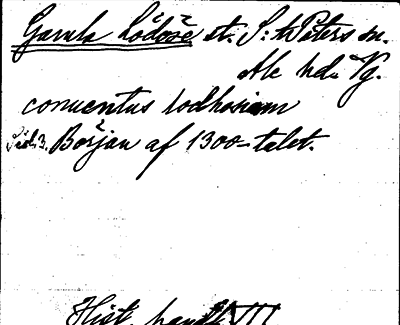 Gamla Lödöse st. S:t Peters sn.
Ale hd. Vg.
conuentus lodhosiam
Början af 1300-talet.
Hist. handl. VII